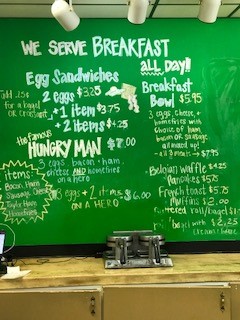 WE SERVE BREAKFAST
ALL DAY!!
Egg Sandwiches
2 eggs $3.25
Add .25¢
for a bagel
or croissant
+ 1 item $3.75
+ 2 items $4.25
the Famous
HUNGRY MAN $7.00
3 eggs bacon + ham,
cheese AND homefries
on a hero
3 eggs + 2 items
ON A HERO $6.00
items:
Bacon, Ham
Sausage, Cheese
Taylor Ham
Homefries
Breakfast
Bowl $5.95
3 eggs, cheese, +
homefries with
choice of ham
bacon or sausage
all mixed up!
all 3 meats → $7.95
Belgian Waffle $4.25
Pancakes $5.75
French toast $5.75
Muffins $2.00
Buttered roll/bagel $1
bagel with $2.25
cream